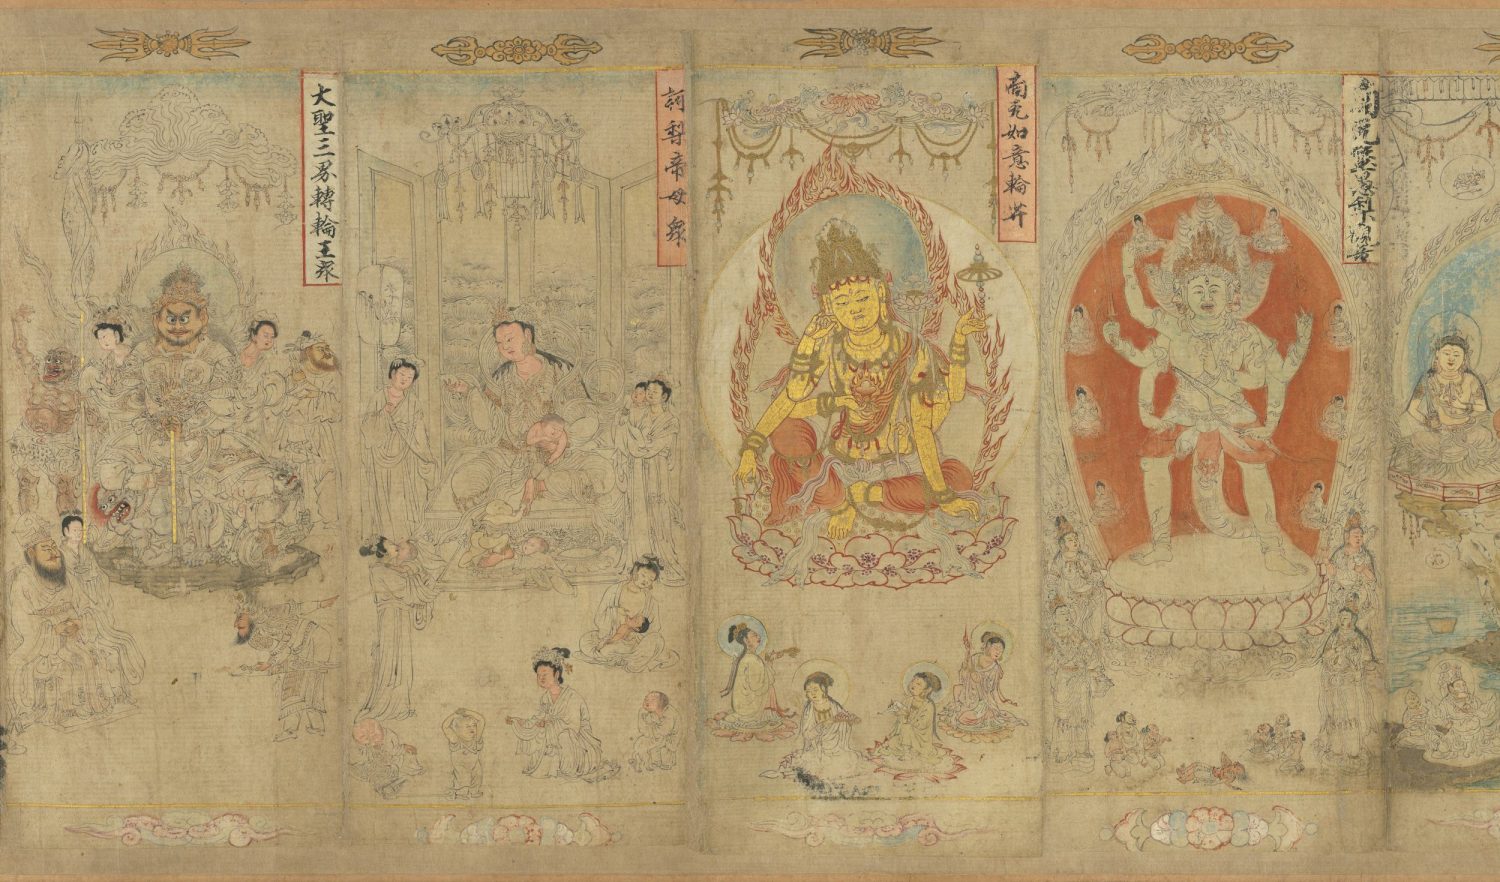 南无如意輪𦬇
訶梨帝母衆
大聖三界轉輪王衆